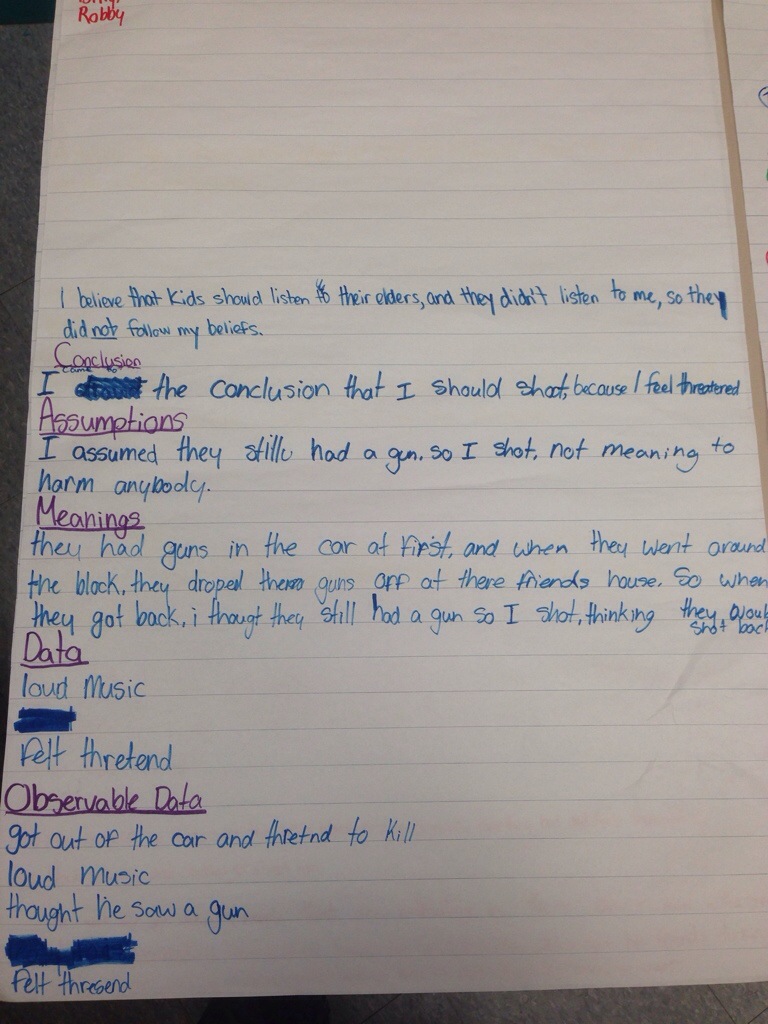 Robby
I believe that Kids should listen to their elders, and they didn't listen to me, so they
did not follow my beliefs.
Conclusion
came to
I the conclusion that I should shoot, because I feel threatened
Assumptions
I assumed they still had a gun. so I shot, not meaning to
harm anybody.
Meanings
they had guns in the car at first, and when they went around
the block, they droped there guns off at there friends house. So when
they got back, i thougt they still had a gun so I shot, thinking they
shot back
Data
loud Music
Felt thretend
Observable Data
got out of the car and thretnd to Kill
loud music
thought he saw a gun
Felt thresend